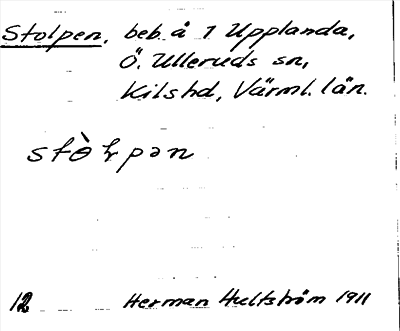 Stolpen, beb. å 1 Upplanda,
Ö. Ulleruds sn,
Kilshd, Värml. län.
12 Herman Hultström 1911